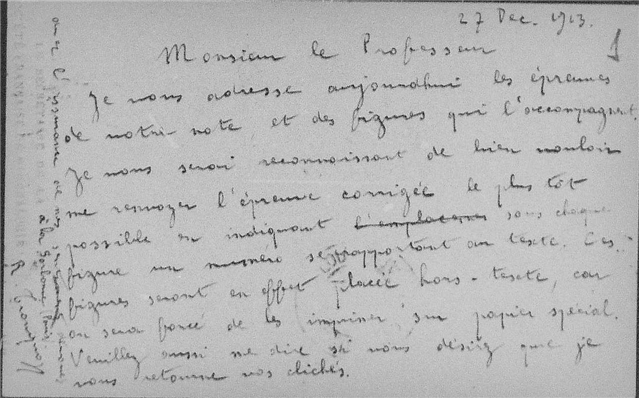 27 Dec. 1913.
1
Monsieur le Professeur
Je vous adresse aujourdhui les épreuves
de votre note et des figures qui l'accompagnent.
Je vous serai reconnaissant de bien vouloir
me renvoyer l'épreuve corrigée le plus tôt
possible en indiquant l'emplacemen sous chaque
figure un numéro se rapportant au texte. Ces
figures seront en effet placée hors-texte, car
on sera forcé de les imprimer sur papier spécial.
Veuillez aussi me dire si vous désirez que je
vous retourne vos clichés.
de mes
à la Sorbonne Paris